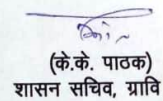 (के.के. पाठक)
शासन सचिव, ग्रावि